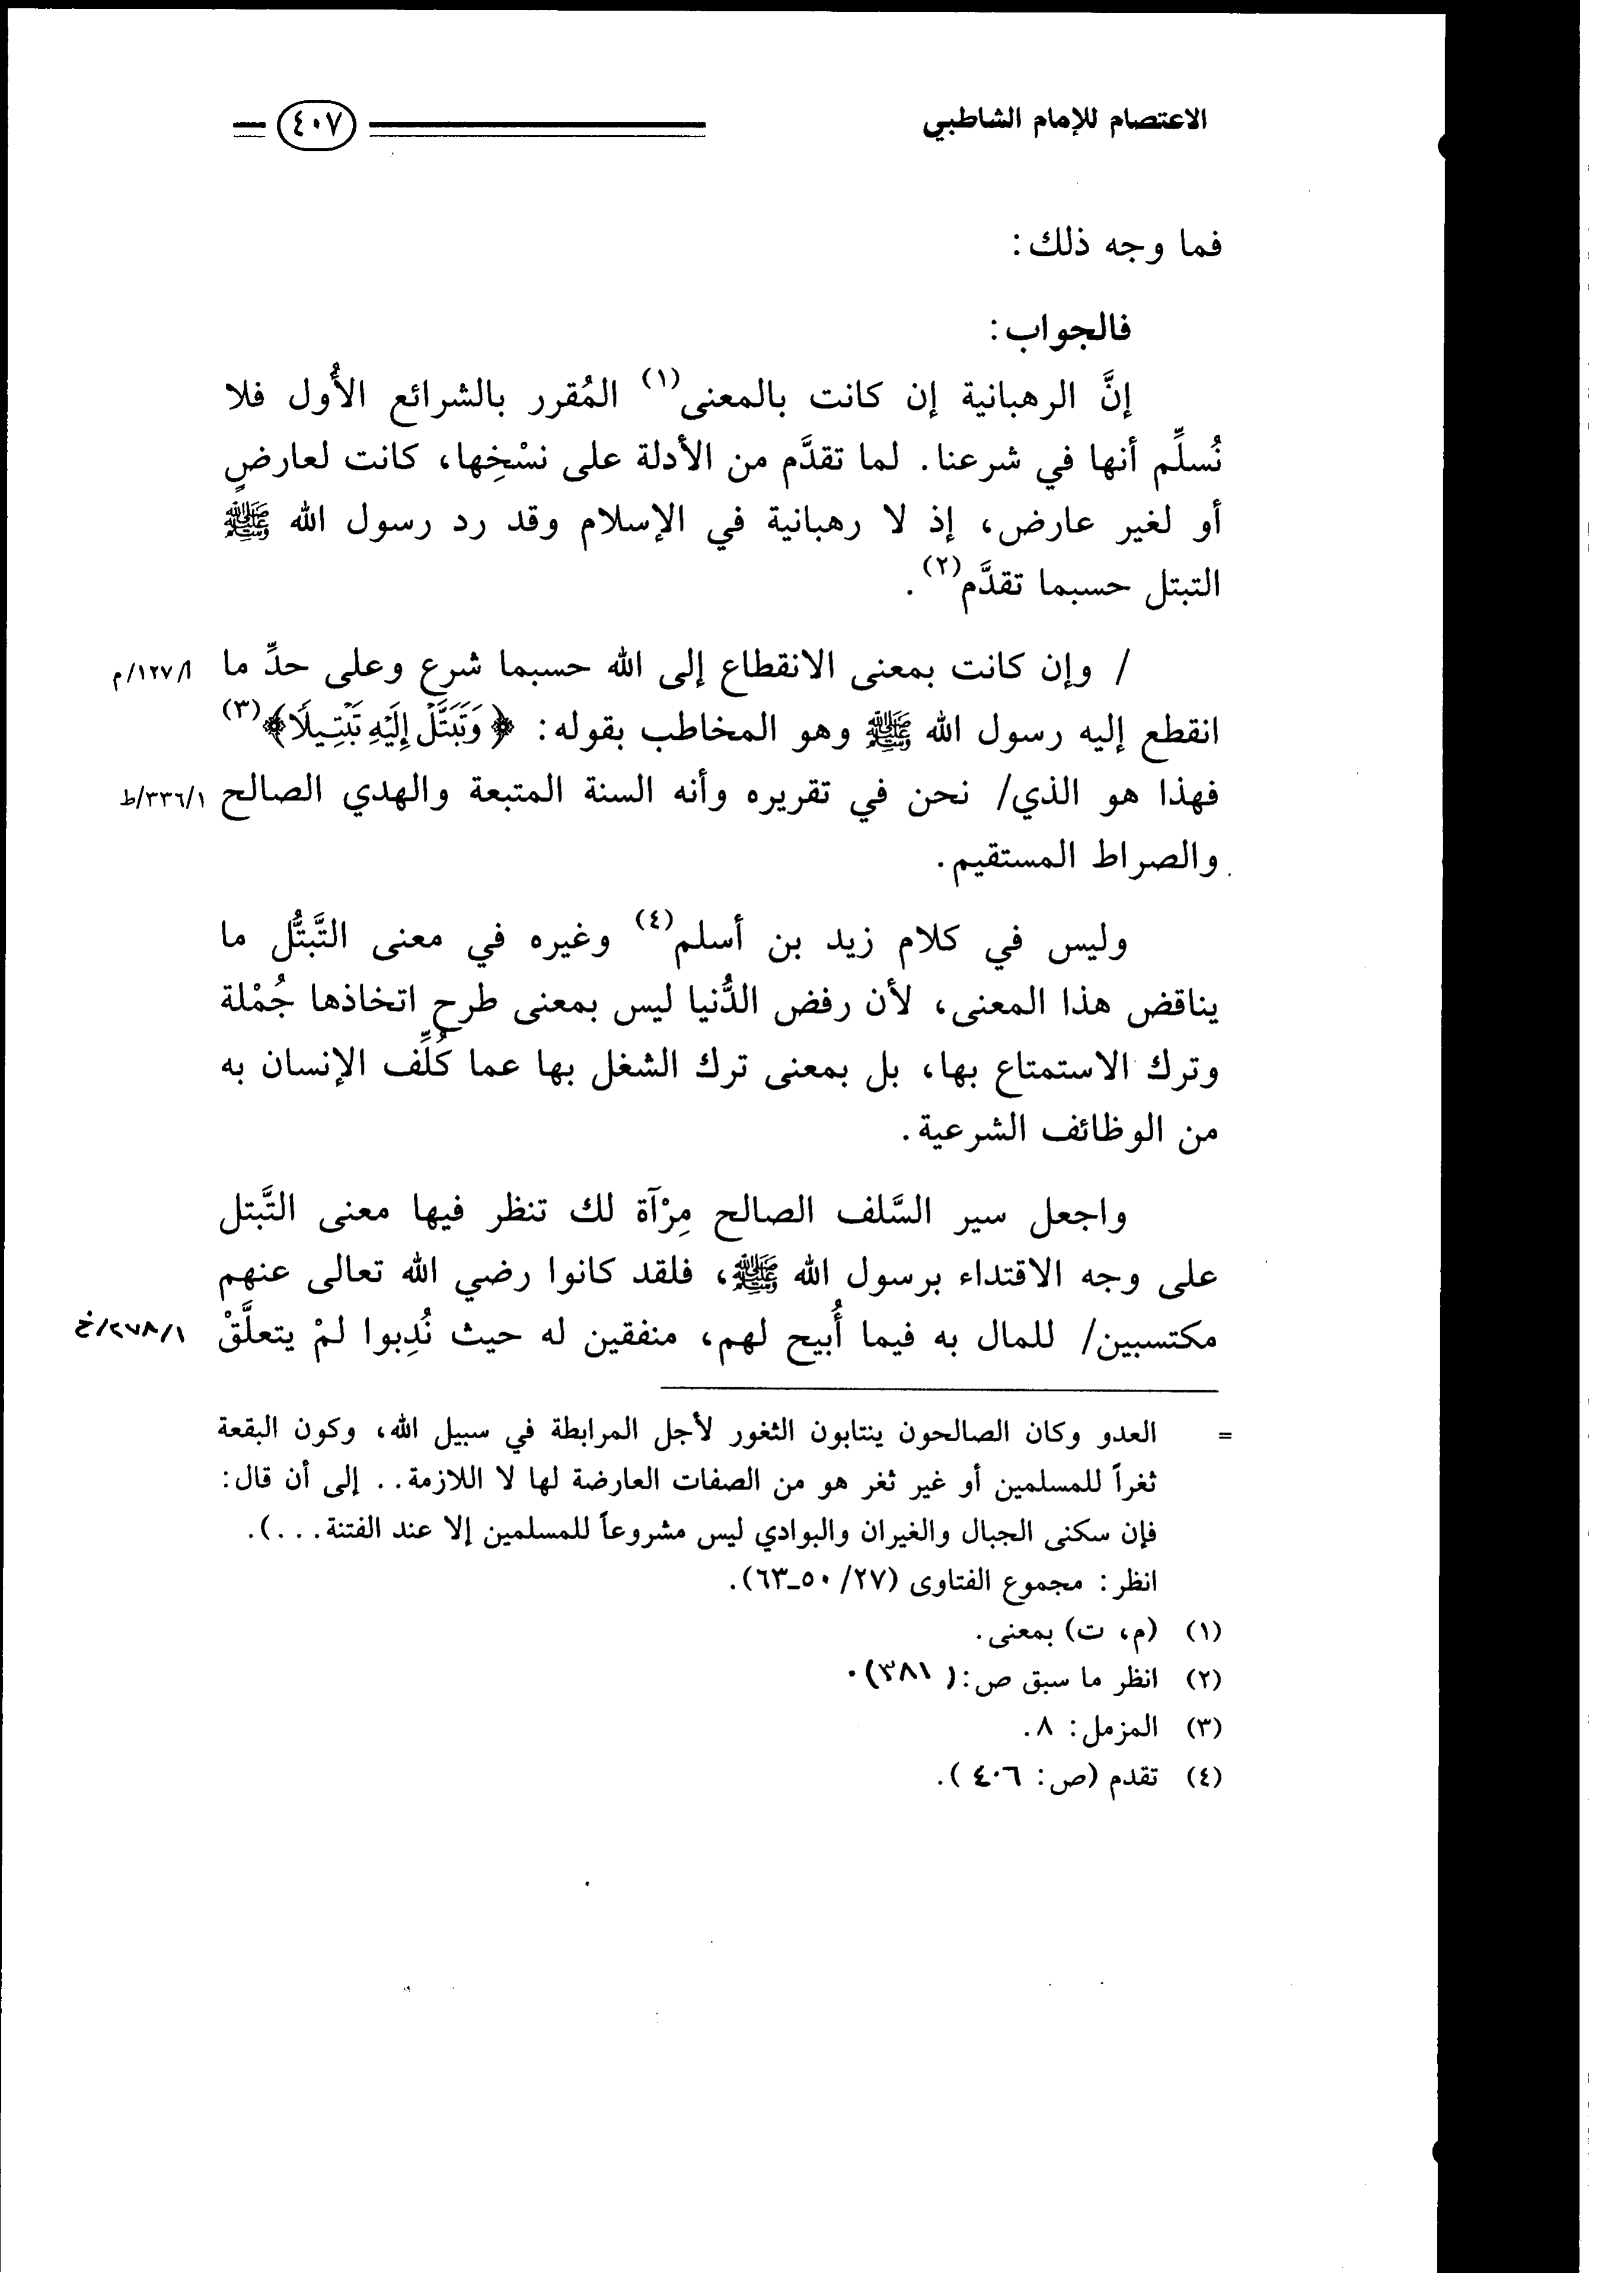 الاعتصام للإمام الشاطبي ٤٠٧
فما وجه ذلك:
فالجواب:
إنَّ الرهبانية إن كانت بالمعنى(١) المُقرر بالشرائع الأُول فلا
نُسلِّم أنها في شرعنا. لما تقدَّم من الأدلة على نسْخِها، كانت لعارضٍ
أو لغير عارض، إذ لا رهبانية في الإسلام وقد رد رسول الله ﷺ
التبتل حسبما تقدَّم(٢).
/ وإن كانت بمعنى الانقطاع إلى الله حسبما شرع وعلى حدِّ ما أ/١٢٧/م
انقطع إليه رسول الله ﷺ وهو المخاطب بقوله: ﴿وَتَبَتَّلْ إِلَيْهِ تَبْتِيلًا﴾(٣)
فهذا هو الذي/ نحن في تقريره وأنه السنة المتبعة والهدي الصالح ١/٣٣٦/ط
والصراط المستقيم.
وليس في كلام زيد بن أسلم(٤) وغيره في معنى التَّبتُّل ما
يناقض هذا المعنى، لأن رفض الدُّنيا ليس بمعنى طرح اتخاذها جُمْلة
وترك الاستمتاع بها، بل بمعنى ترك الشغل بها عما كُلِّف الإنسان به
من الوظائف الشرعية.
واجعل سير السَّلف الصالح مِرْآة لك تنظر فيها معنى التَّبتل
على وجه الاقتداء برسول الله ﷺ، فلقد كانوا رضي الله تعالى عنهم
مكتسبين/ للمال به فيما أُبيح لهم، منفقين له حيث نُدِبوا لمْ يتعلَّقْ ١/٢٧٨/خ
= العدو وكان الصالحون ينتابون الثغور لأجل المرابطة في سبيل الله، وكون البقعة
ثغراً للمسلمين أو غير ثغر هو من الصفات العارضة لها لا اللازمة.. إلى أن قال:
فإن سكنى الجبال والغيران والبوادي ليس مشروعاً للمسلمين إلا عند الفتنة...).
انظر: مجموع الفتاوى (٢٧/ ٥٠ـ٦٣).
(١) (م، ت) بمعنى.
(٢) انظر ما سبق ص: (٣٨١).
(٣) المزمل: ٨.
(٤) تقدم (ص: ٤٠٦).